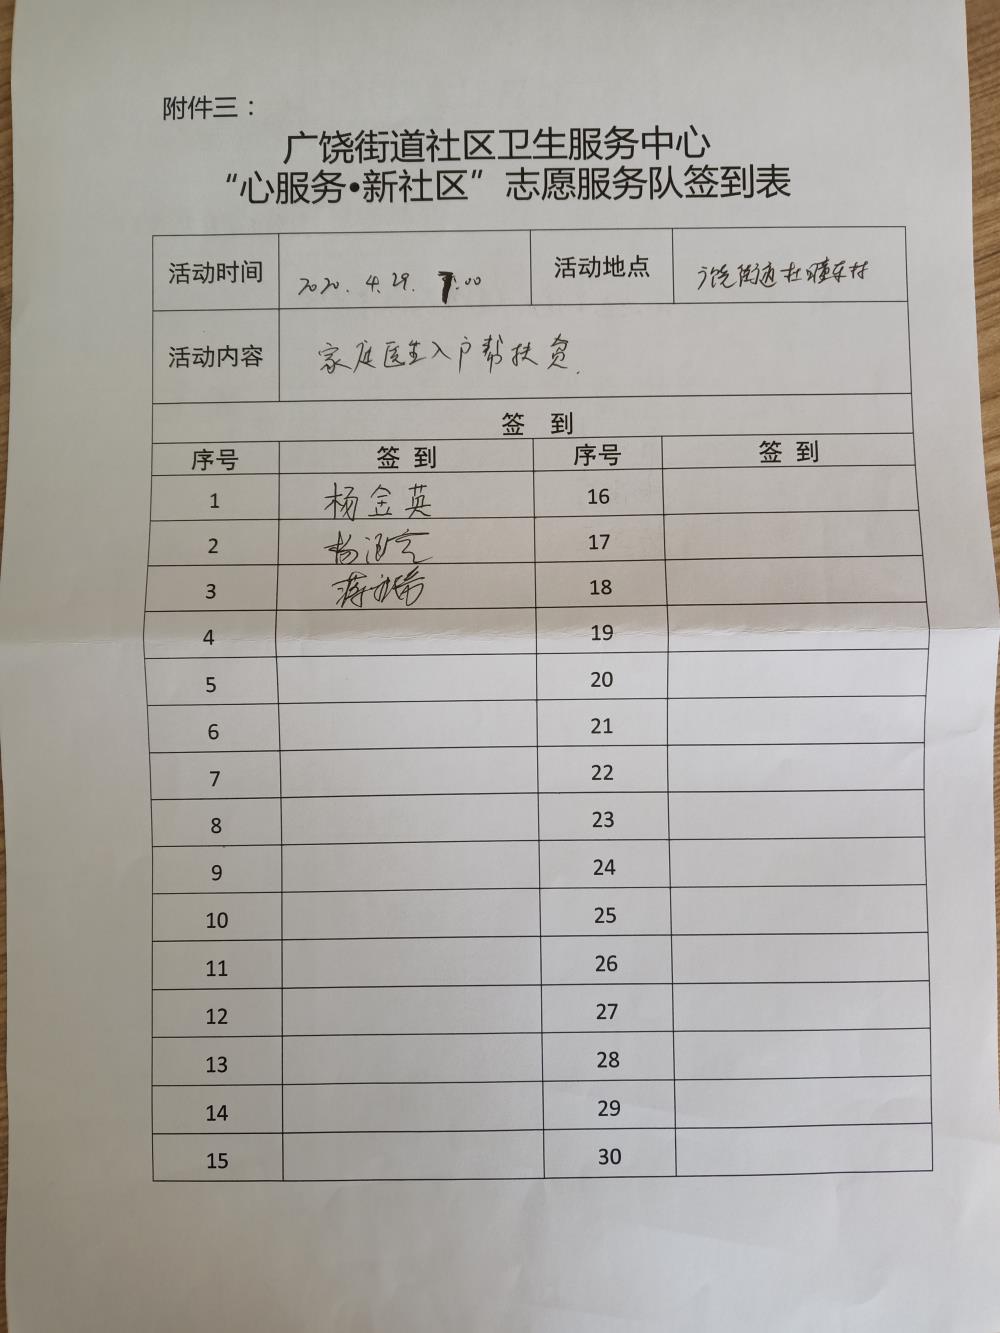 附件三：
广饶街道社区卫生服务中心
“心服务•新社区”志愿服务队签到表
活动时间 2020.4.29. 7:00 活动地点 广饶街道杜疃东村
活动内容 家庭医生入户帮扶贫.
签 到
序号 签 到 序号 签 到
1 杨金英 16
2 杨 17
3 蒋 18
4 19
5 20
6 21
7 22
8 23
9 24
10 25
11 26
12 27
13 28
14 29
15 30